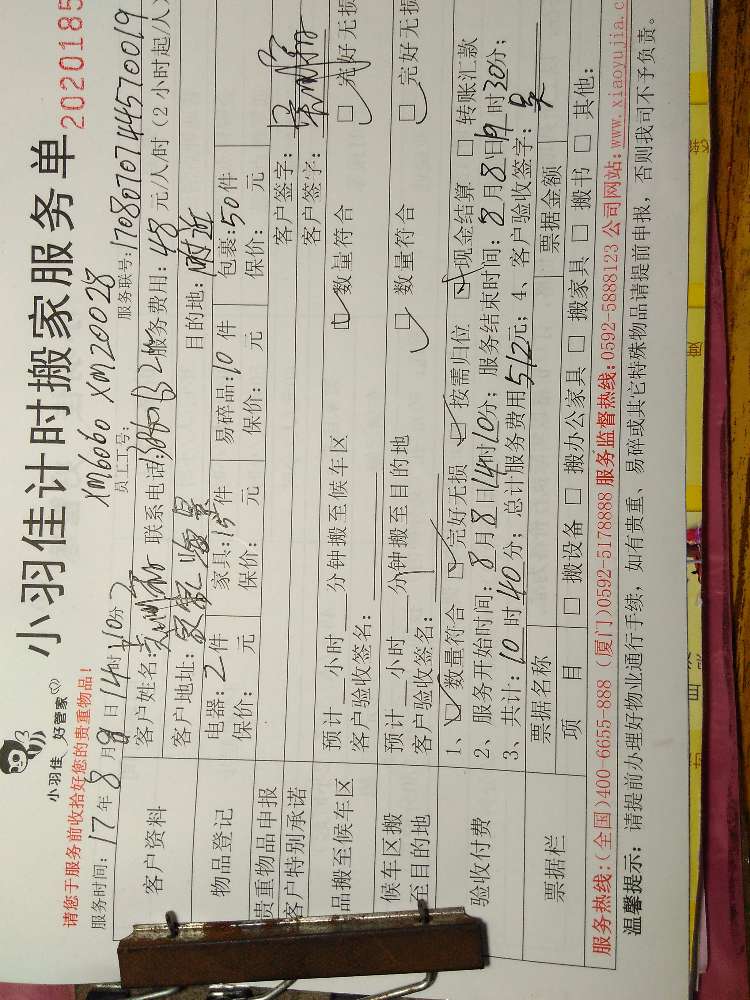 小羽佳计时搬家服务单
2020185
小羽佳 好管家
XM6060 XM20028
请您于服务前收拾好您的贵重物品!
员工工号:
服务联号: 17080707445570019
服务时间: 17年8月8日14时10分
客户资料
客户姓名: 联系电话: 服务费用: 48元/人/时(2小时起/人)
客户地址: 目的地: 附近
物品登记
电器: 2件 家具: 15件 易碎品: 10件 包裹: 50件
保价: 元 保价: 元 保价: 元 保价: 元
贵重物品申报
客户特别承诺
客户签字:
品搬至候车区
预计__小时__分钟搬至候车区 数量符合 完好无损
客户验收签名: 客户签字:
候车区搬至目的地
预计__小时__分钟搬至目的地 数量符合 完好无损
客户验收签名:
验收付费
1、数量符合 完好无损 按需归位 现金结算 转账汇款
2、服务开始时间: 8月8日14时10分; 服务结束时间: 8月8日19时30分;
3、共计: 10时40分; 总计服务费用512元; 4、客户验收签字: 吴
票据栏
票据名称 票据金额
项目 搬设备 搬办公家具 搬家具 搬书 其他:
服务热线:(全国)400-6655-888 (厦门)0592-5178888 服务监督热线:0592-5888123 公司网站:www.xiaoyujia.c
温馨提示: 请提前办理好物业通行手续, 如有贵重、易碎或其它特殊物品请提前申报, 否则我司不予负责。